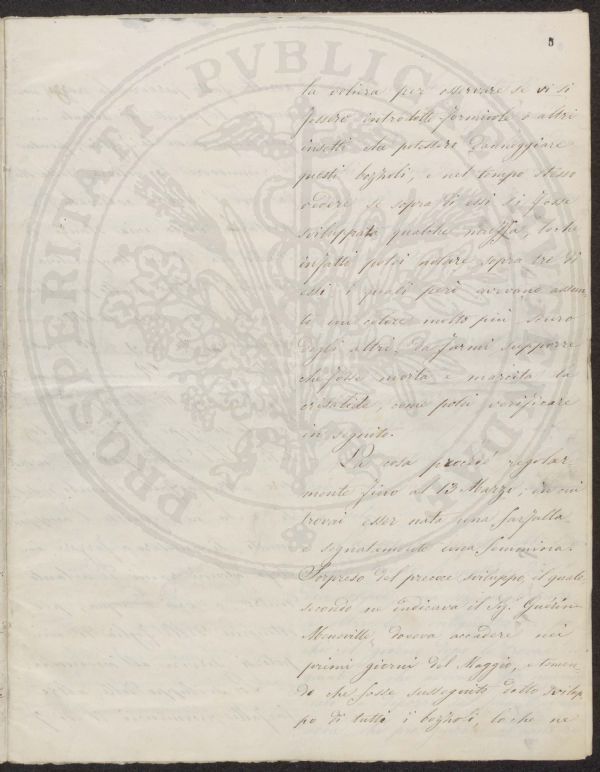 5
la voliera per osservare se vi si
fossero introdotte formicole o altri
insetti che potessero danneggiare
questi bozzoli, e nel tempo stesso
vedere se sopra di essi si fosse
sviluppata qualche muffa, loche
infatti potei notare sopra tre di
essi i quali però avevano assun-
to un colore molto più scuro
degli altri, da farmi supporre
che fosse morta e marcita la
crisalide, come potei verificare
in seguito.
La cosa procedé regolar-
mente fino al 13 Marzo, in cui
trovai esser nata una farfalla
e segnatamente una femmina.
Sorpreso del precoce sviluppo, il quale
secondo ne indicava il Sig. Guérin
Meneville, doveva accadere nei
primi giorni del Maggio, e temen-
do che fosse susseguito dallo svilup-
po di tutti i bozzoli, loche ne
PROSPERITATI PVBLICAE